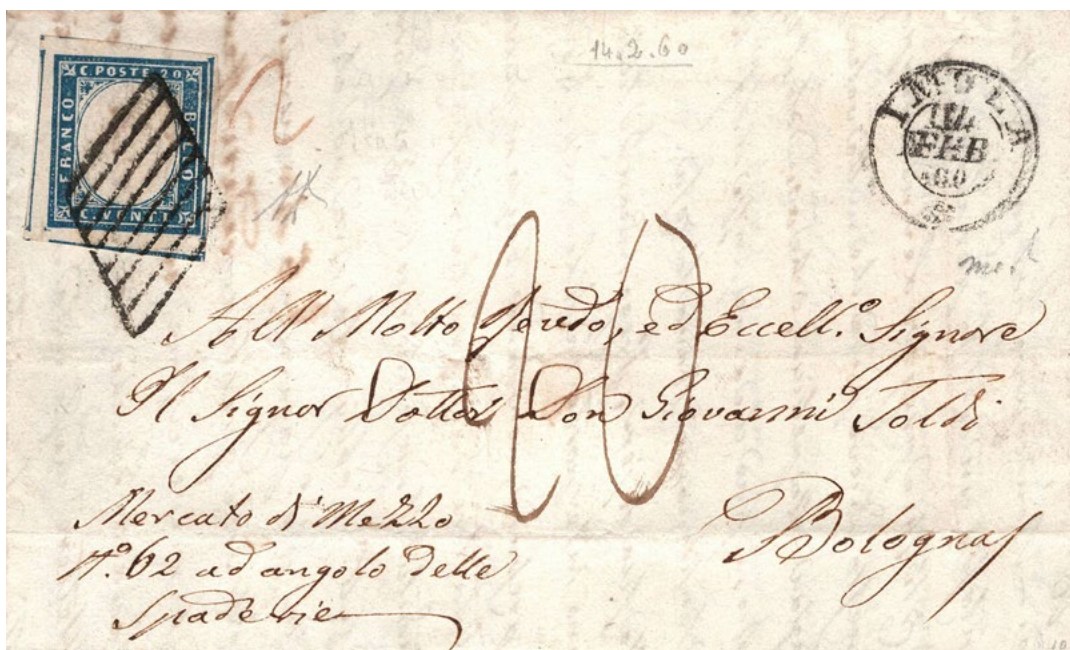 14.2.60
C POSTE 20
FRANCO
BOLLO
C. VENTI
IMOLA
14
FEB
60
20
All Molto Revdo, ed Eccell.º Signore
Il Signor Dottor Don Giovanni Toldi
Mercato di Mezzo
Nº. 62 ad angolo delle
Spaderie
Bologna